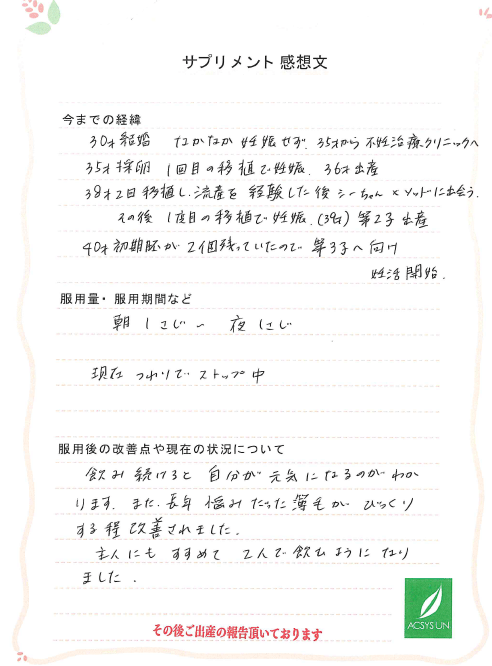 サプリメント 感想文
今までの経緯
30才結婚 なかなか妊娠せず 35才から不妊治療クリニックへ
35才採卵 1回目の移植で妊娠. 36才出産
38才2回移植し、流産を経験した後 シーちゃん×メソッドに出会う.
その後 1度目の移植で妊娠. (39才) 第2子出産
40才初期胚が2個残っていたので 第3子へ向け
妊活開始.
服用量・服用期間など
朝 1さじ ~ 夜 1さじ
現在 つわりでストップ中
服用後の改善点や現在の状況について
飲み続けると 自分が元気になるのがわか
ります. また、長年 悩みだった薄毛が びっくり
する程 改善されました.
主人にも すすめて 2人で飲むようになり
ました.
ACSYSUN
その後ご出産の報告頂いております